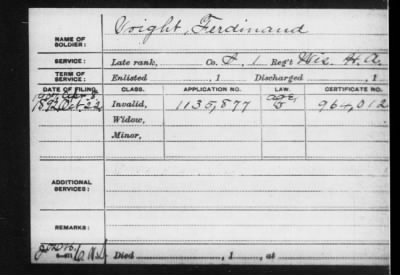 NAME OF SOLDIER: Voight, Ferdinand
SERVICE: Late rank, Co. A, 1 Reg't Wis. H. A.
TERM OF SERVICE: Enlisted , 1 Discharged , 1
DATE OF FILING. CLASS. APPLICATION NO. LAW. CERTIFICATE NO.
Apr. 8, age
1892 Oct. 22 Invalid, 1135,877 964,012
Widow,
Minor,
ADDITIONAL SERVICES:
REMARKS:
Died , 1 , at